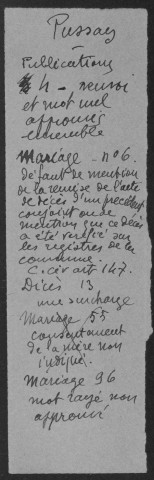 Pussay
Publications
4 - renvoi
et mot nul
approuvés
ensemble
Mariage - no 6.
défaut de mention
de la remise de l'acte
de décès d'un précédent
conjoint ou de
mention que ce décès
a été vérifié sur
les registres de la
commune.
C. civ art 147.
Décès 13
une surcharge
Mariage 55
consentement
de la mère non
indiqué.
Mariage 96
mot rayé non
approuvé